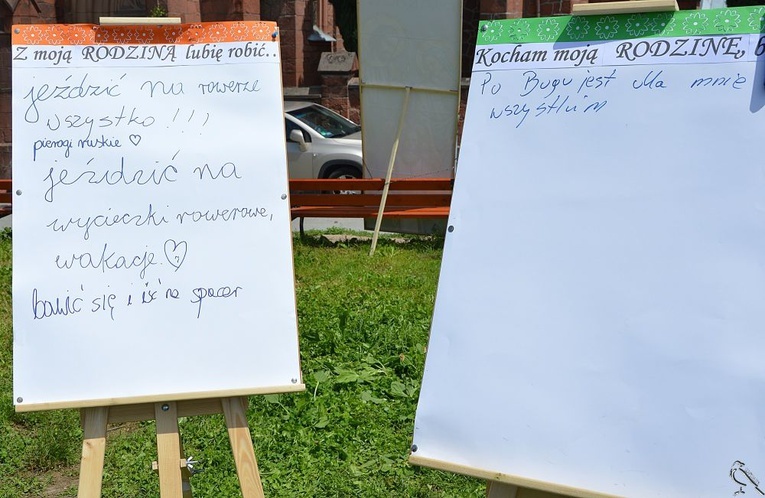 Z moją RODZINĄ lubię robić...
jeździć na rowerze
wszystko !!!
pierogi ruskie ♡
jeździć na
wycieczki rowerowe,
wakacje. ♡
bawić się i iść na spacer
Kocham moją RODZINĘ, b
Po Bogu jest dla mnie
wszystkim